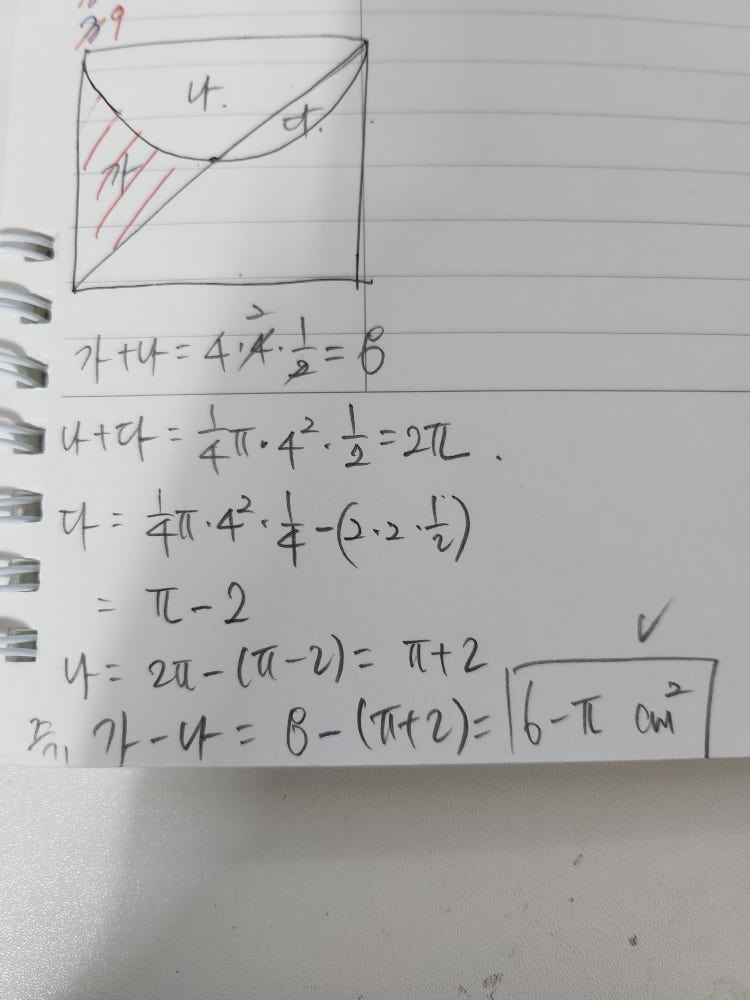 39
나.
다.
가
가+나 = 4·4·1/2 = 8
2
나+다 = 1/4π·4²·1/2 = 2π.
다 = 1/4π·4²·1/4-(2·2·1/2)
= π-2
나 = 2π-(π-2) = π+2
가-나 = 8-(π+2) = 6-π cm²